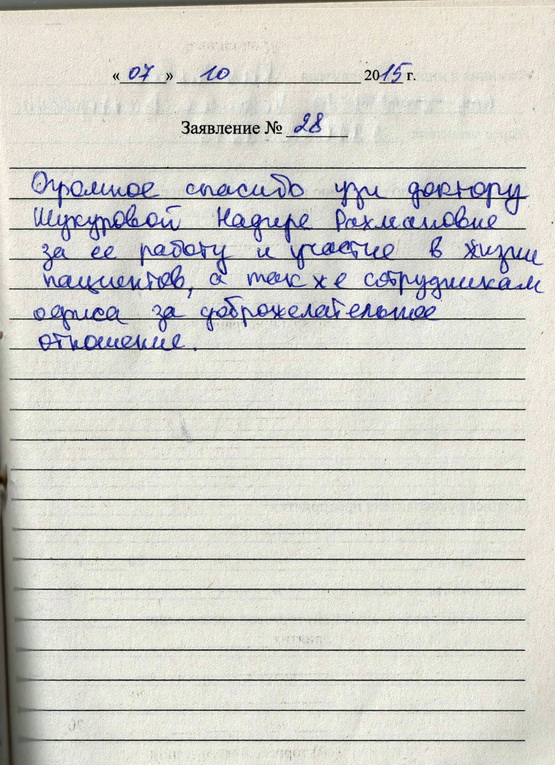 « 07 » 10 2015 г.
Заявление № 28
Огромное спасибо узи доктору
Шукуровой Надире Рахмановне
за ее работу и участие в жизни
пациентов, а так же сотрудникам
офриса за доброжелательное
отношение.